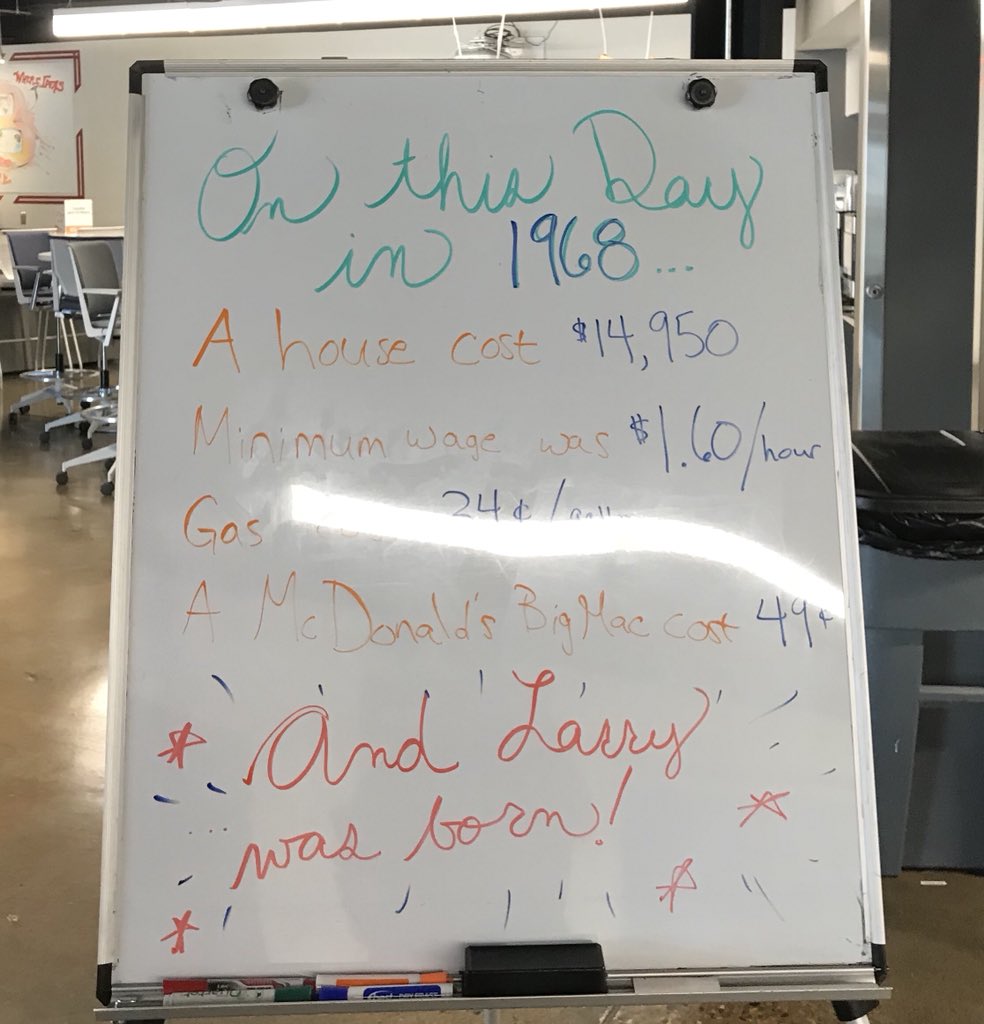 On this Day
in 1968...
A house cost $14,950
Minimum wage was $1.60/hour
Gas 34¢/gallon
A McDonald's Big Mac cost 49¢
And Larry
was born!